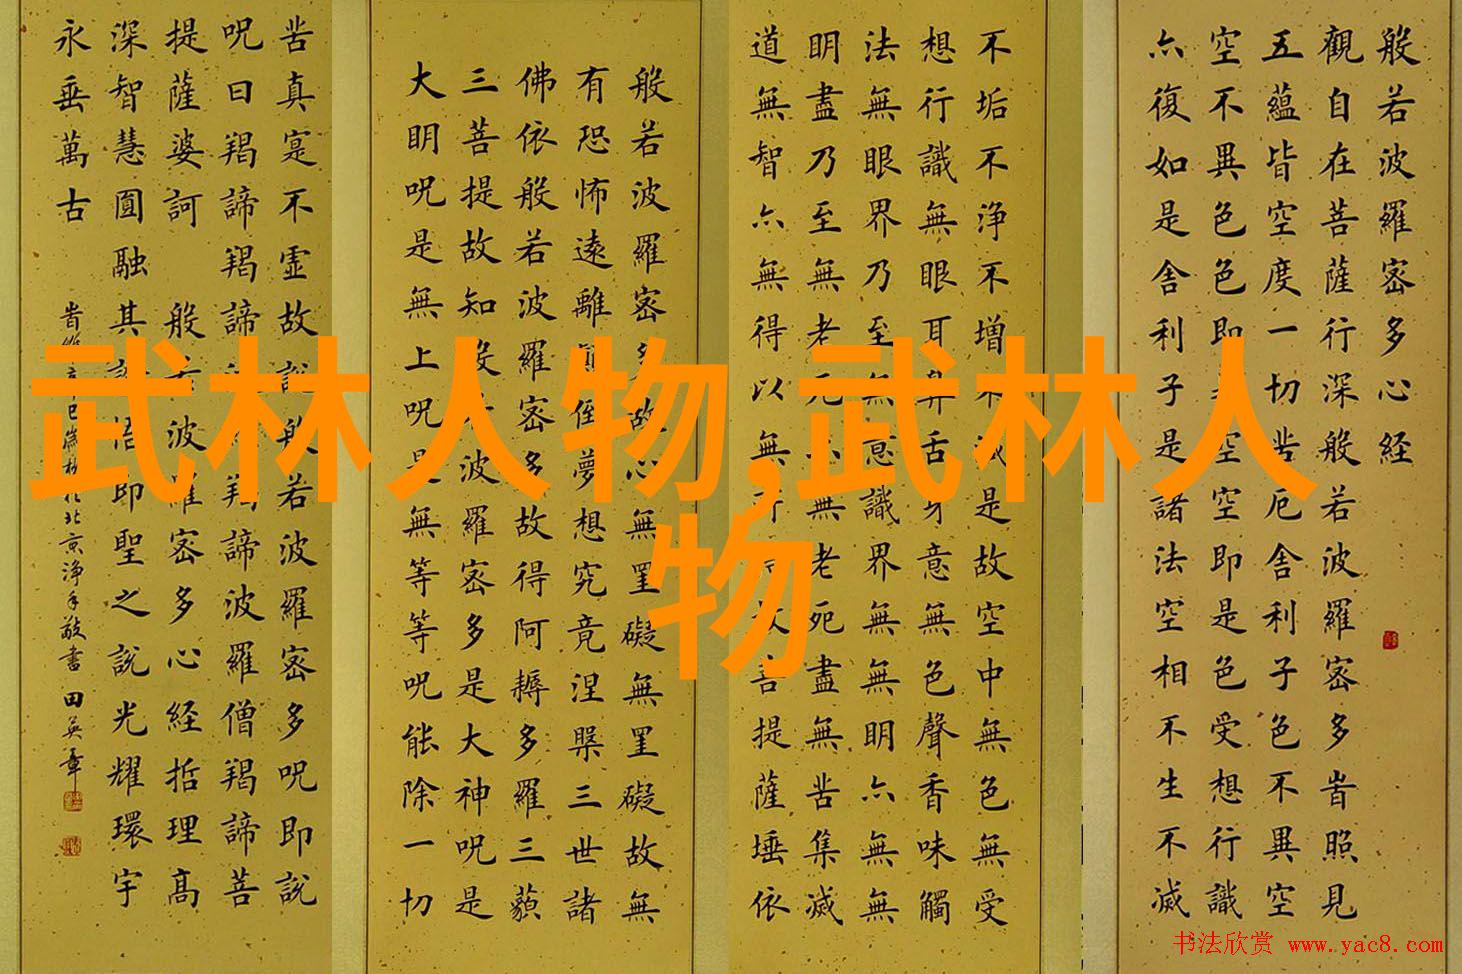 武林人物,武林人
物
般若波羅密多心経
觀自在菩薩行深般若波羅密多旹照見
五蘊皆空度一切苦厄舎利子色不異空
空不異色色即是空空即是色受想行識
亦復如是舎利子是諸法空相不生不滅
不垢不浄不增不減是故空中無色無受
想行識無眼耳鼻舌身意無色聲香味觸
法無眼界乃至無意識界無無明亦無無
明盡乃至無老死亦無老死盡無苦集滅
道無智亦無得以無所得故菩提薩埵依
般若波羅密多故心無罣礙無罣礙故無
有恐怖遠離顛倒夢想究竟涅槃三世諸
佛依般若波羅密多故得阿耨多羅三藐
三菩提故知般若波羅密多是大神呪是
大明呪是無上呪是無等等呪能除一切
苦真寔不虛故說般若波羅密多呪即說
呪曰羯諦羯諦波羅羯諦波羅僧羯諦菩
提薩婆訶 般若波羅密多心経括理高
深智慧圓融其悟即聖之說光耀環宇
永垂萬古
旹維辛巳歲北京浄手敬書 田英章
书法欣赏 www.yac8.com